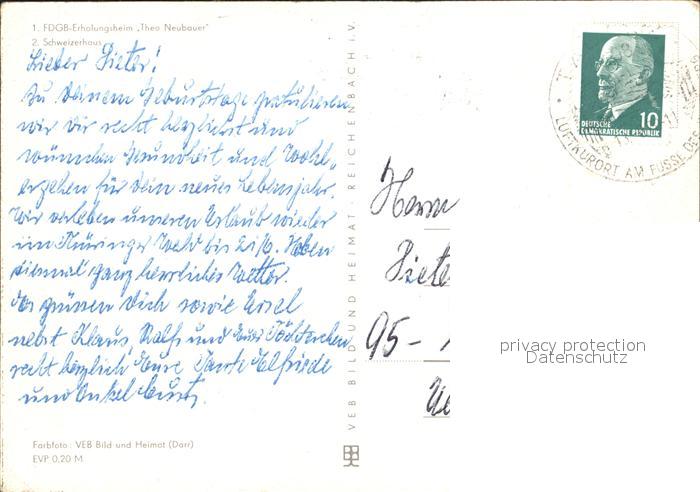 1. FDGB-Erholungsheim „Theo Neubauer"
2. Schweizerhaus
Lieber Dieter!
Zu Deinem Geburtstage gratulieren
wir Dir recht herzlichst und
wünschen Gesundheit und Wohl„
ergehen für Dein neues Lebensjahr.
Wir verleben unseren Urlaub wieder
im Thüringer Wald bis 21/6. Haben
diesmal ganz herrliches Wetter.
Es grüssen Dich sowie Ursel
nebst Klaus, Ralf und Eure Töchterchen
recht herzlich Eure Tante Elfriede
und Onkel Kurt.
Farbfoto: VEB Bild und Heimat (Darr)
EVP 0,20 M
VEB BILD UND HEIMAT · REICHENBACH i. V.
DEUTSCHE
DEMOKRATISCHE REPUBLIK
10
LUFTKURORT AM FUSSE DES
Herrn
Diete
95-
privacy protection
Datenschutz